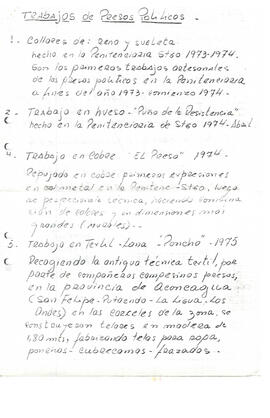 TRABAJOS de PRESOS POLITICOS.
1- Collares de: reno y suebeta
hecho en la Penitenciaria Stgo 1973-1974.
Son los primeros trabajos artesanales
de los presos politicos en la Penitenciaria
a fines del año 1973-comienzo 1974.
2- Trabajo en hueso-"Puño de la Resistencia"
hecho en la Penitenciaria de Stgo 1974-Abril
4- Trabajo en Cobre "EL Preso" 1974-
Repujado en cobre primeras expresiones
en este metal en la Penitenc-Stgo, luego
se perfecciona técnica, haciendo combina
ción de colores y en dimensiones más
grandes (muebles)--
5- Trabajo en Textil-Lana "Poncho"-1975
Recogiendo la antigua técnica textil, por
parte de compañeros campesinos presos,
en la provincia de Aconcagua
(San Felipe-Putaendo-La Ligua-Los
Andes) en las carceles de la zona, se
construyeron telares en madera de
1,80 mts, fabricando telas para ropa,
ponchos-cubrecamas-frazadas-